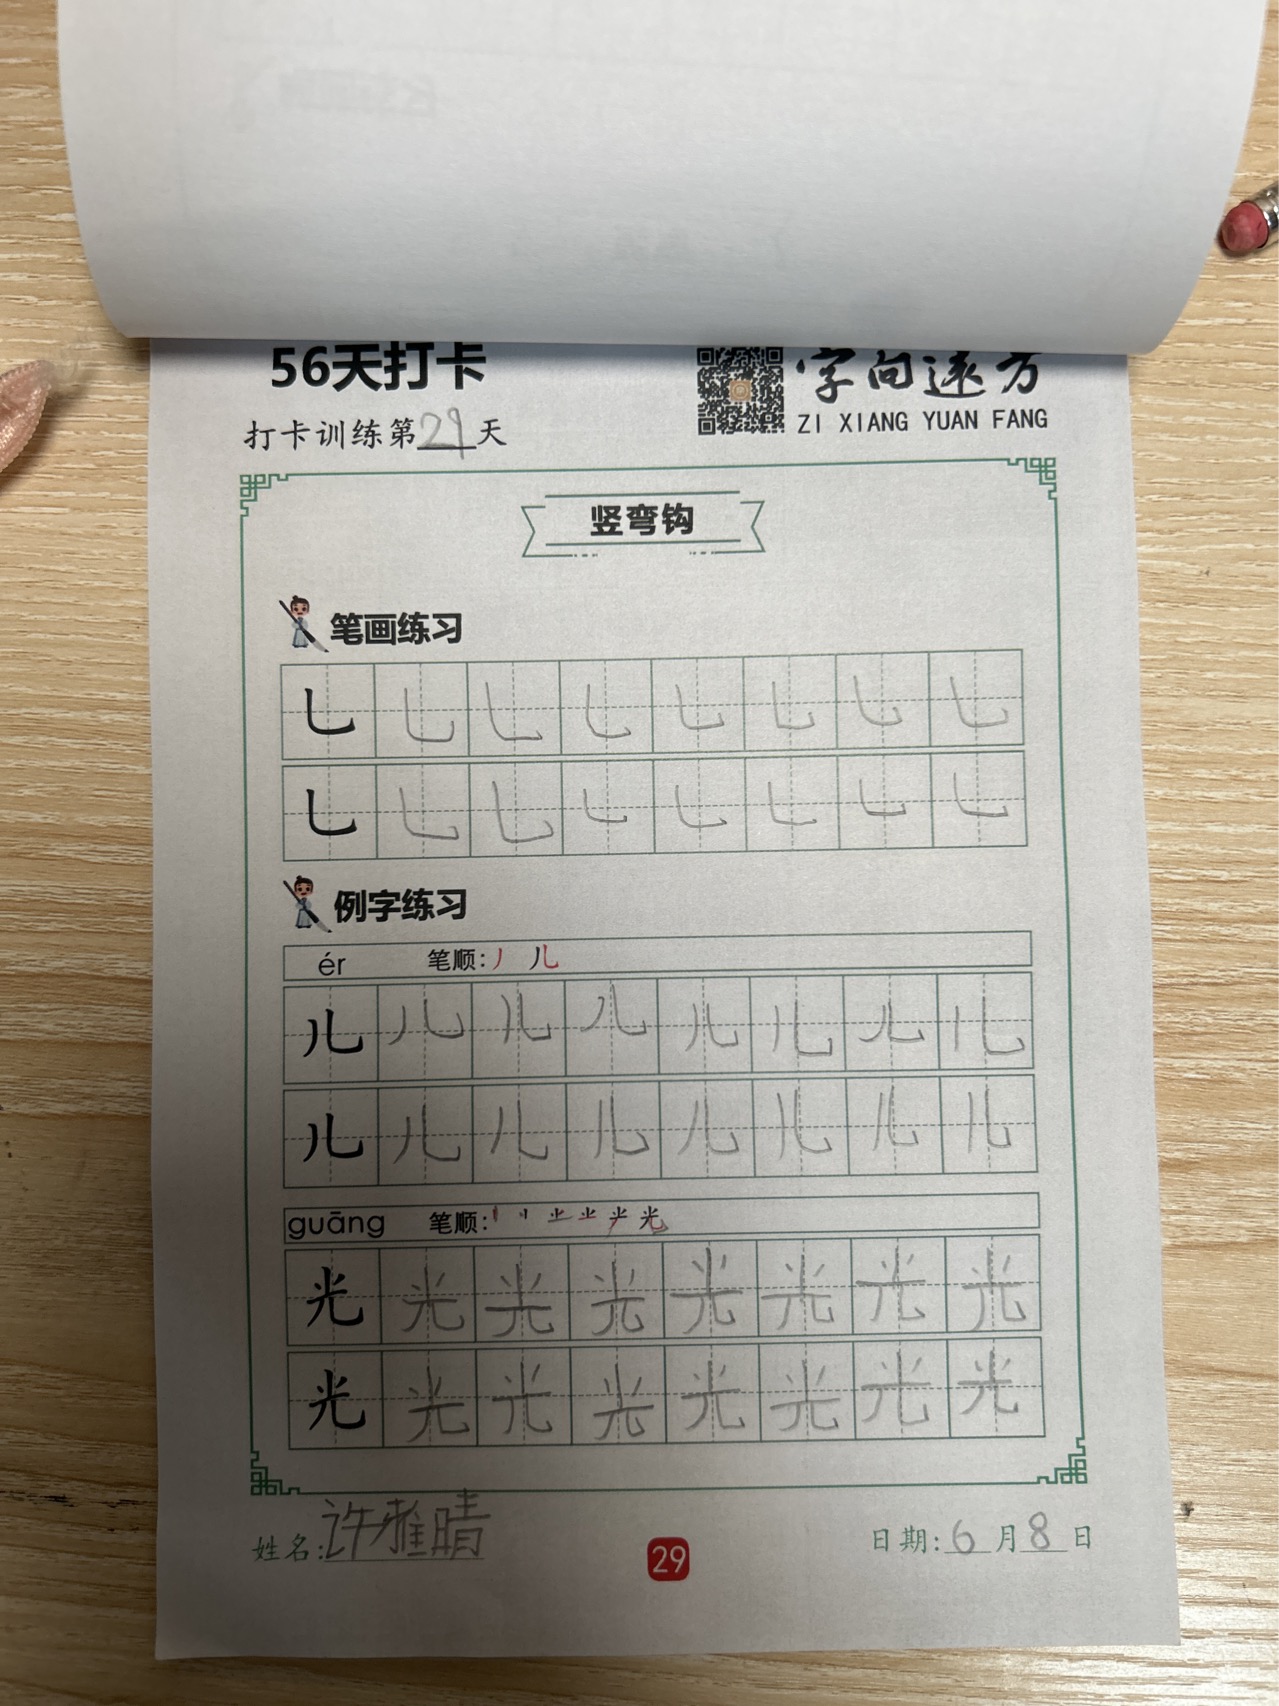 56天打卡
字向远方
打卡训练第29天
ZI XIANG YUAN FANG
竖弯钩
笔画练习
乚 乚 乚 乚 乚 乚 乚 乚
乚 乚 乚 乚 乚 乚 乚 乚
例字练习
ér 笔顺:丿 儿
儿 儿 儿 儿 儿 儿 儿 儿
儿 儿 儿 儿 儿 儿 儿 儿
guāng 笔顺: 光
光 光 光 光 光 光 光 光
光 光 光 光 光 光 光 光
姓名:许雅晴
29
日期:6月8日